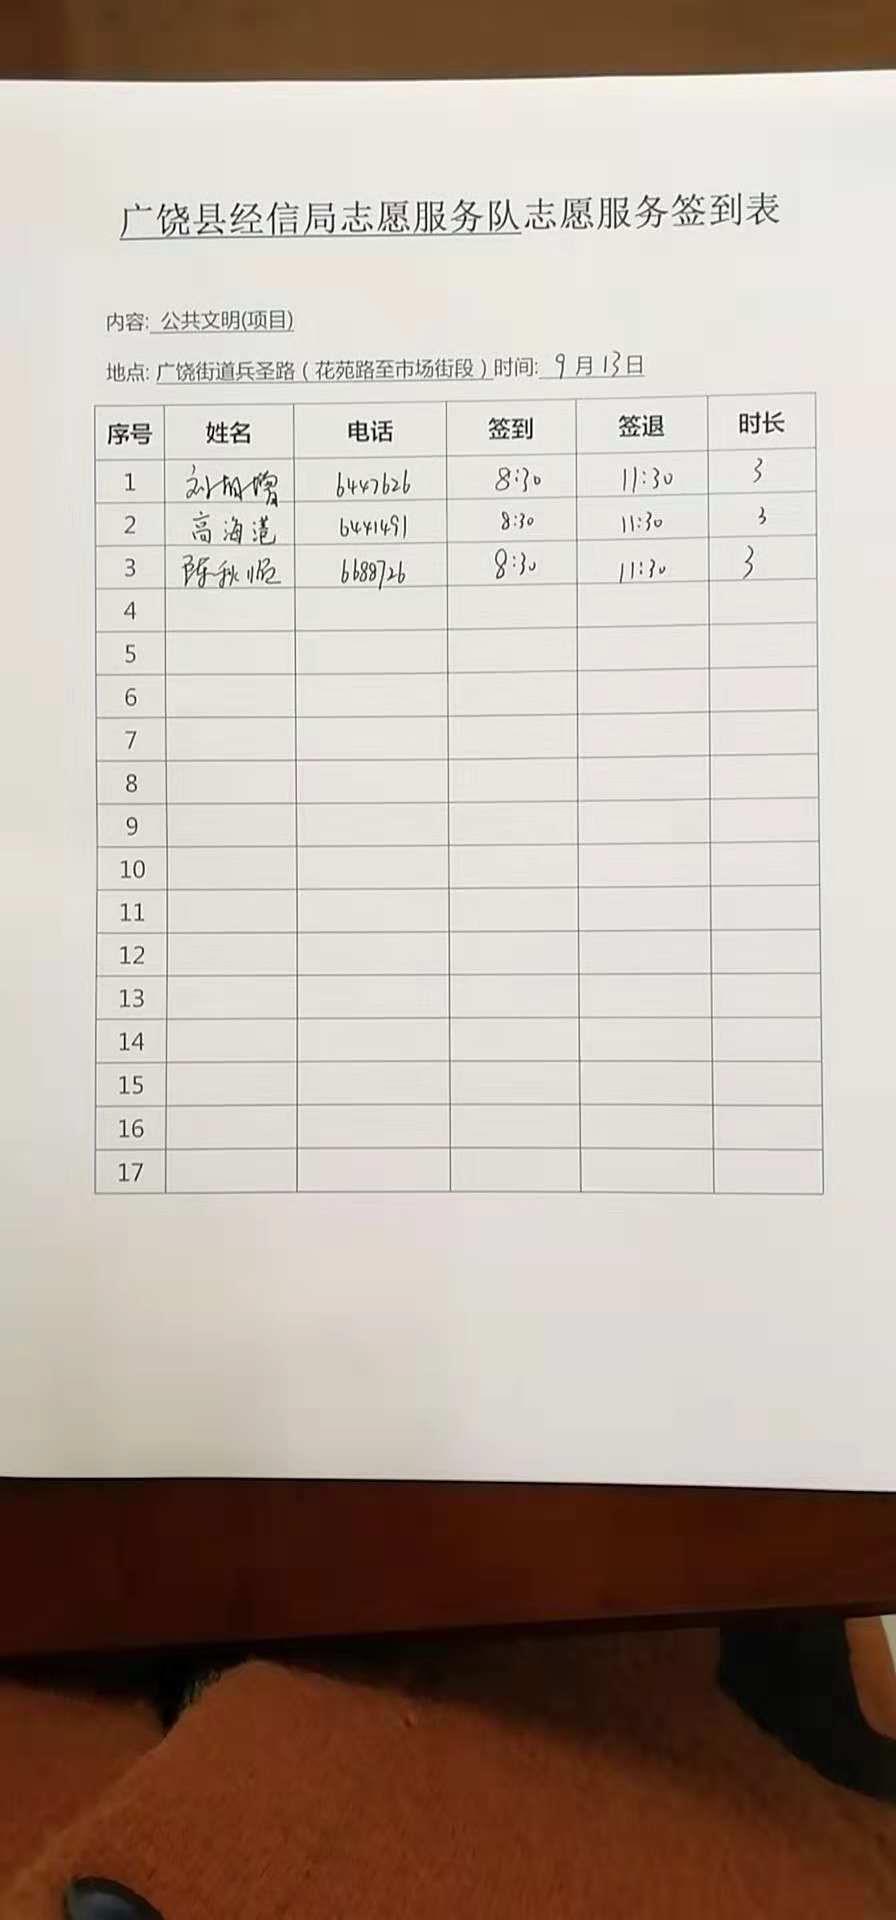 广饶县经信局志愿服务队志愿服务签到表
内容: 公共文明(项目)
地点: 广饶街道兵圣路（花苑路至市场街段）时间: 9月13日
序号 姓名 电话 签到 签退 时长
1 刘 6447626 8:30 11:30 3
2 高海港 6441491 8:30 11:30 3
3 陈秋恒 6688726 8:30 11:30 3
4
5
6
7
8
9
10
11
12
13
14
15
16
17